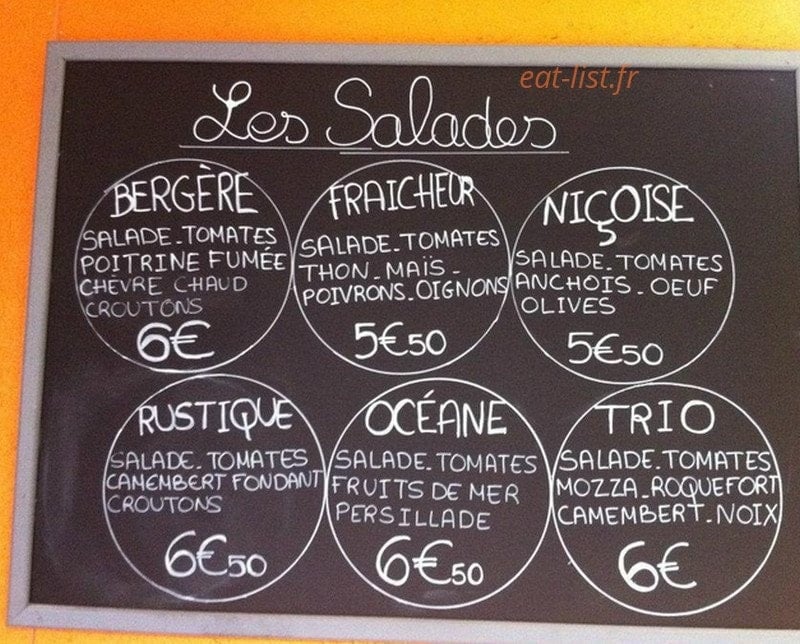 eat-list.fr
Les Salades
BERGÈRE
SALADE_TOMATES
POITRINE FUMÉE
CHEVRE CHAUD
CROUTONS
6€
FRAICHEUR
SALADE_TOMATES
THON_MAÏS_
POIVRONS_OIGNONS
5€50
NIÇOISE
SALADE_TOMATES
ANCHOIS_OEUF
OLIVES
5€50
RUSTIQUE
SALADE_TOMATES
CAMEMBERT FONDANT
CROUTONS
6€50
OCÉANE
SALADE_TOMATES
FRUITS DE MER
PERSILLADE
6€50
TRIO
SALADE_TOMATES
MOZZA_ROQUEFORT
CAMEMBERT_NOIX
6€